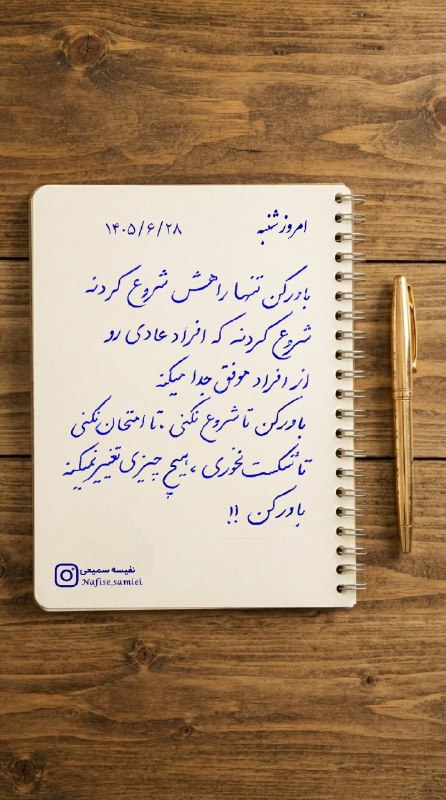 امروز شنبه
۱۴۰۵/۶/۲۸
باورکن تنها راهش شروع کردنه
شروع کردنه که افراد عادی رو
از افراد موفق جدا میکنه
باورکن تا شروع نکنی ، تا امتحان نکنی
تا شکست نخوری ، هیچ چیزی تغییر نمیکنه
باورکن !!
نفیسه سمیعی
Nafise_samiei